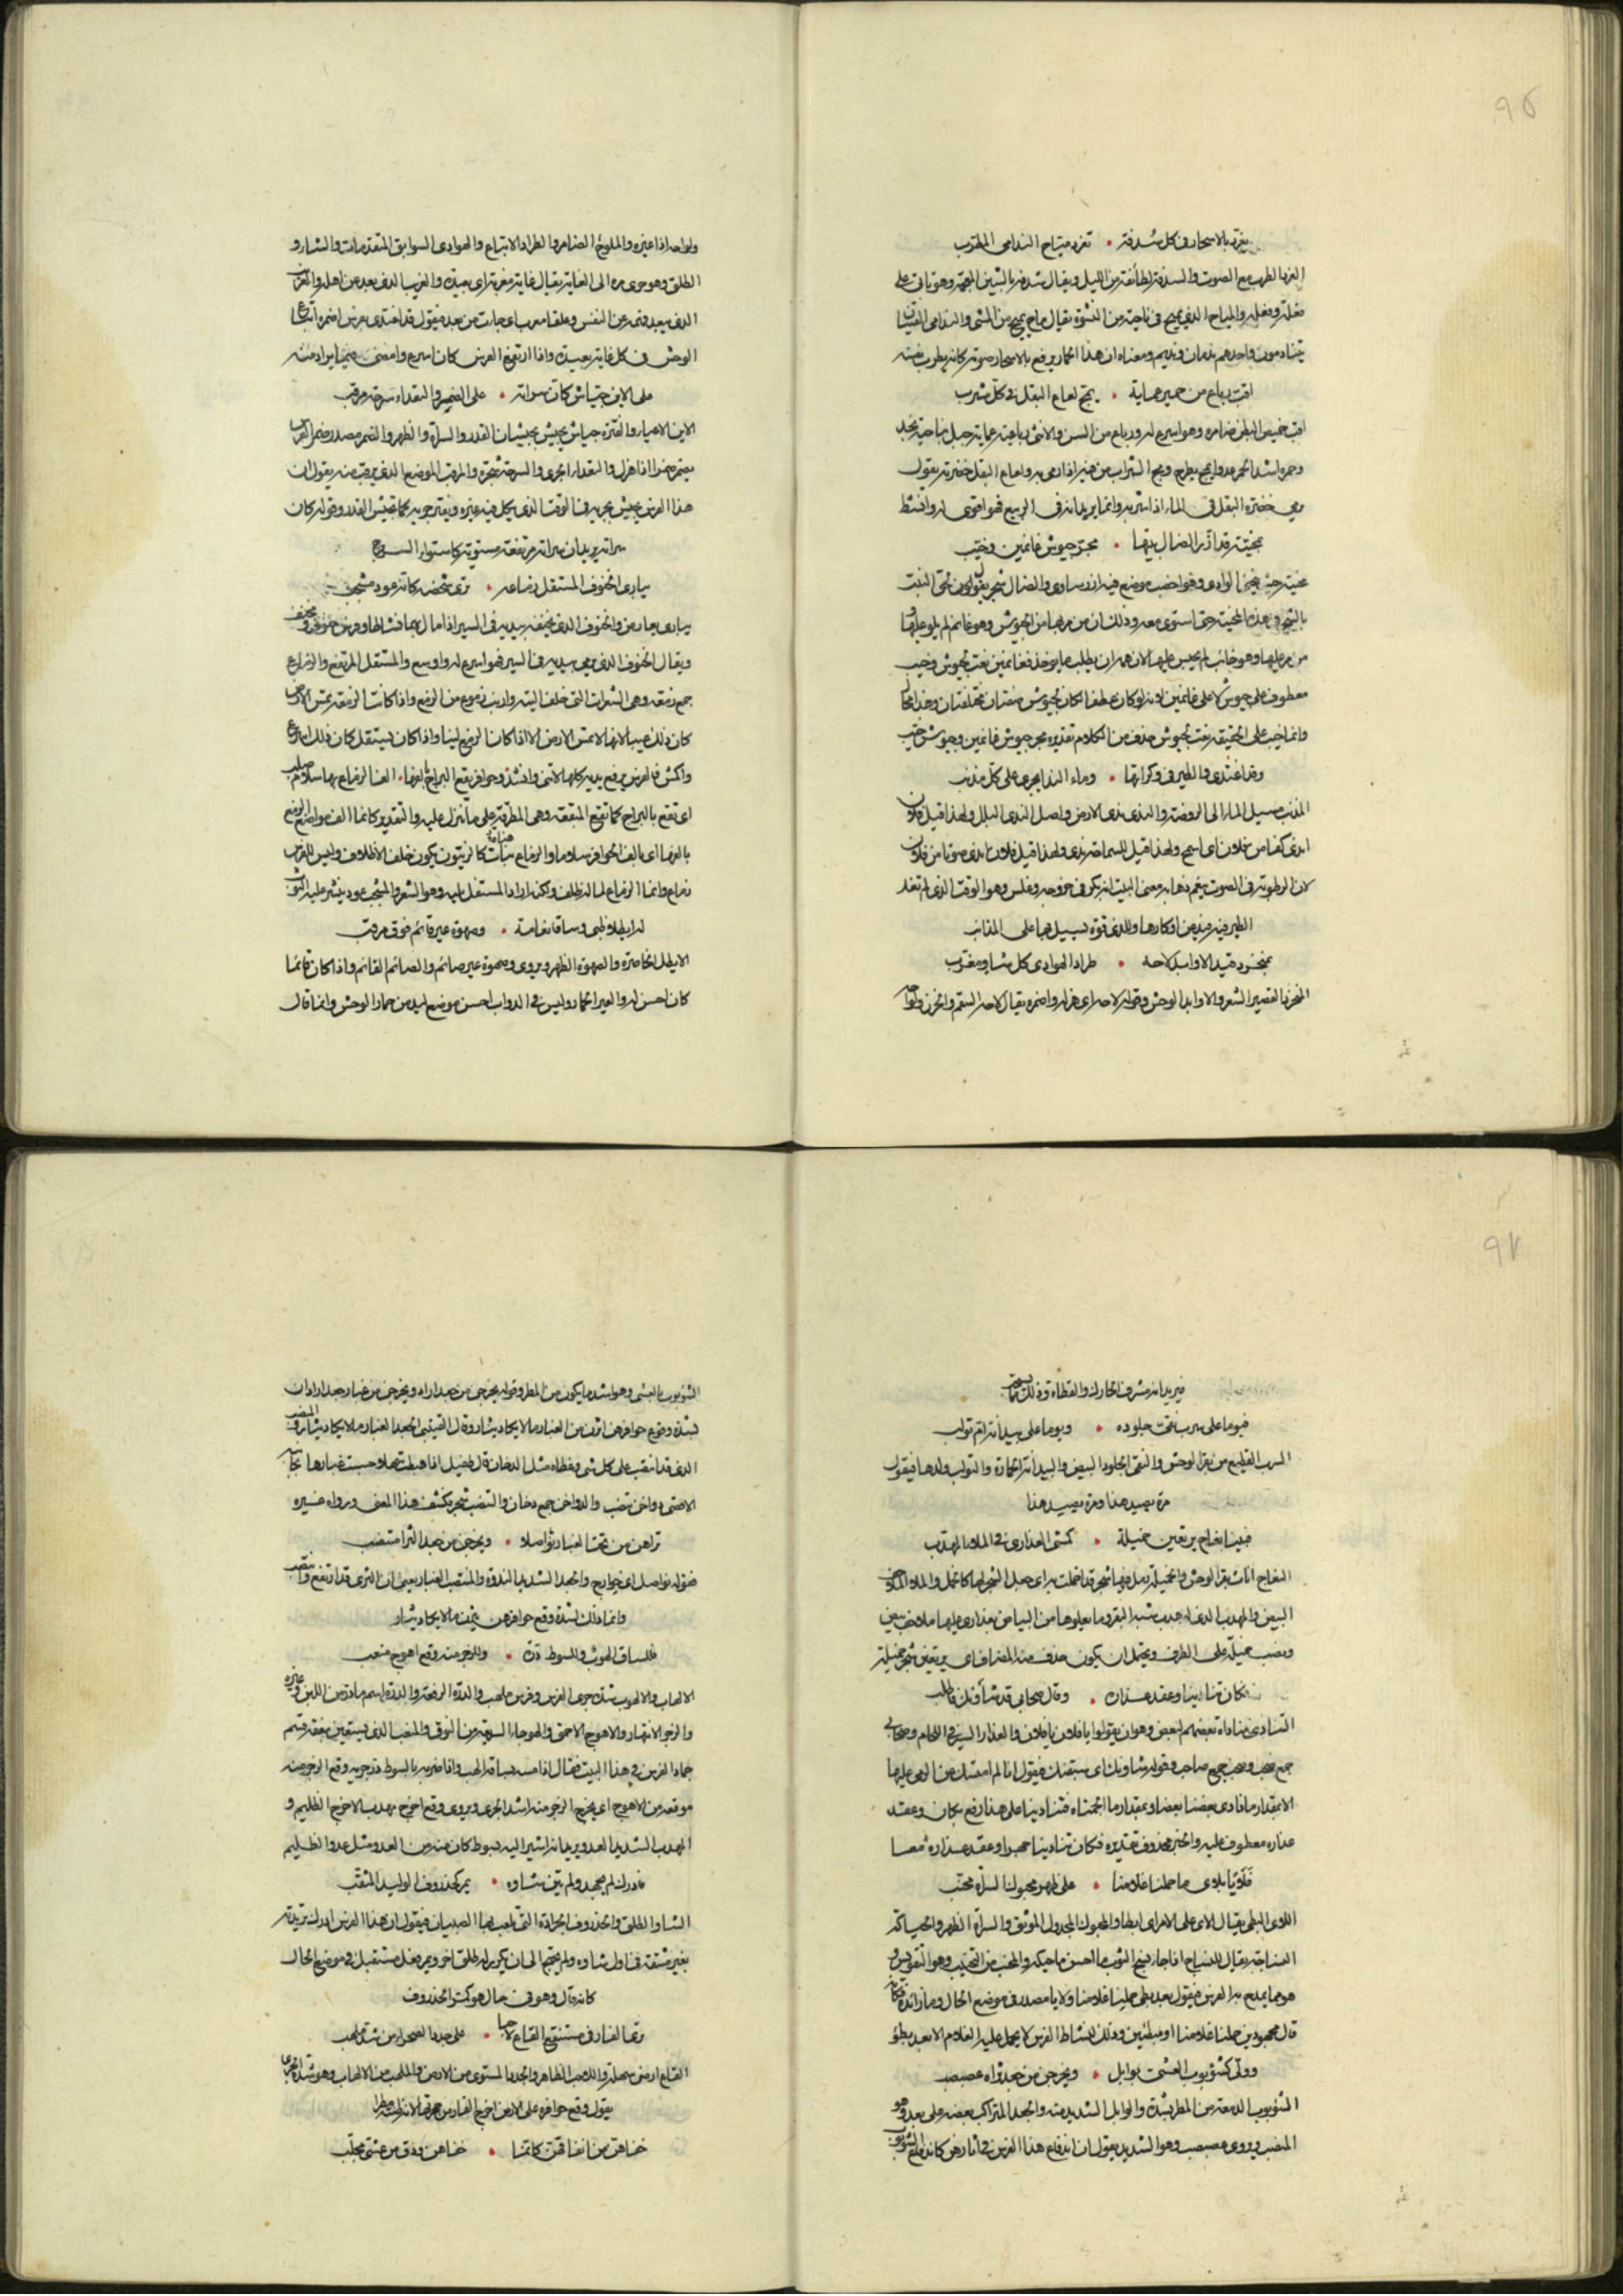 يغرد بالاسحار فى كل سدفة • تغرد مياح الندامى المطرب
الغرد الطرب مع الصوت والسدفة الطائفة من الليل ويقال سدفه بالشين المعجمة وهو ياتى على
فعلة وفعله والمياح الذى يميح فى ناحية من النشوة يقال ماح يميح من المشى والندامى الفتيان
يتنادمون واحدهم ندمان ونديم ومعناه ان هذا الحمار يرفع بالاسحار صوته كانه يطرب نفسه
اقب رباع من حمير عماية • يمج لعاع البقل فى كل مشرب
اقب خميص البطن ضامره وهو اسرع له ورباع من السن والانثى رباعية وعماية جبل بناحية نجد
وحمره اشد الحمر عدوا يمج يطرح ومج الشراب من فيه اذا رمى به ولعاع البقل خضرته يقول
يرمى خضرة البقل فى الماء اذا شربه وانما يريد انه فى الربيع فهو اقوى له وانشط
بمحنية قد ازر الضال نبتها • مجر جيوش غانمين وخيب
محنية حيث ينحنى الوادى وهو اخصب موضع فيه ازر ساوى والضال شجر يقول لحق النبت
بالشجر فى هذه المحنية حتى استوى معه وذلك ان من مر بها من الجيوش وهو غانم لم يلو عليها
من مر عليها وهو خائب لم يحبس عليها لان همه ان يطلب ما يؤخذ فغانمين نعت لجيوش وخيب
معطوف على جيوش لا على غانمين لانه لو كان عطفا لكان لجيوش صفتان مختلفتان وهذا محال
وانما خيب على الحقيقة نعت لجيوش حذف من الكلام تقديره مجر جيوش غانمين وجيوش خيب
وقد اغتدى والطير فى وكراتها • وماء الندا يجرى على كل مذنب
المذنب مسيل الماء الى الروضة والندى ندى الارض واصل الندى البلل ولهذا قيل فلان
اندى كفا من فلان اى اسمح ولهذا قيل للسماحة ندى ولهذا قيل فلان اندى صوتا من فلان
لان الرطوبة فى الصوت معنى البيت انه بكر فى خروجه وغلس وهو الوقت الذى لم تغد
الطير فيه من اوكارها وللندى قوة تسيل بها على المذانب
بمنجرد قيد الاوابد لاحه • طراد الهوادى كل شاو مغرب
المنجرد القصير الشعر والاوابد الوحش وقوله لاحه اى هزله واضمره يقال لاحه السقم والحزن ولواحه
ولواحه اذا غيره والملوح الضامر والطراد الاتباع والهوادى السوابق المتقدمات والشاو
الطلق وهو جرى مره الى الغاية يقال غاية مغربة اى بعيدة والغريب الذى بعد عن اهله
الذى يبعد فيقول قد اغتدى بفرس اضمره اتباع
الوحش فى كل غاية بعيدة واذا ارتفع الفرس كان اسرع وامضى فيما يراد منه
على الاين جياش كان سراته • على الضمر والتعداء سرحة مرقب
الاين الاعياء والفترة جياش يجيش كجيشان القدر والسراة الظهر والضمر مصدر ضمر الفرس
يضمر ضمرا اذا هزل والتعداء الجرى والسرحة شجرة والمرقب الموضع الذى يرقب منه يقول ان
هذا الفرس يجيش بجريه فى الوقت الذى يكل فيه غيره ويفتر جريه كما تجيش القدر وقوله كان
سراته يريد ان سراته مرتفعة مستوية كاستواء السرح
يبارى الخنوف المستقل زماعه • ترى شخصه كانه عود مشجب
يبارى يعارض والخنوف الذى يخنف بيديه فى السير اذا مال بهما نشاطا وفرس خنوف
ويقال الخنوف الذى يرمى بيديه فى السير فهو اسرع له واوسع والمستقل المرتفع والزماع
جمع زمعة وهى الشعرات التى خلف الثنة واذا كانت الزمعة تمس الارض
كان ذلك عيبا لانها لا تمس الارض الا اذا كان الرسغ لينا واذا كان يستقل كان ذلك اسرع
اى تقع بالبراح كما تقع المنقعة وهى المطرقة على ما تنزل عليه والتقدير كانما الف مواضع الزمع
بالغرا اى بالف الحوافر سلاما والزماع هنات كالزيتون يكون خلف الاظلاف وليس للفرس
زماع وانما الزماع لما له ظلف ولكن اراد المستقل ثنيه وهو الشعر والمشجب عود ينشر عليه الثوب
له ايطلا ظبى وساقا نعامة • وصهوة عير قائم فوق مرقب
الايطل الخاصرة والصهوة الظهر ويروى وصهوة عير صائم والصائم القائم واذا كان قائما
كان احسن له والعير الحمار وليس فى الدواب احسن موضع لبد من حمار الوحش وانما قال
فيوما على سرب نقى جلوده • ويوما على بيدانة ام تولب
السرب القطيع من بقر الوحش والنقى الجلود البيض والبيدانة الحمارة والتولب ولدها فيقول
مرة يصيد هذا ومرة يصيد هذا
فبينا نعاج يرتعين خميلة • كمشى العذارى فى الملاء المهدب
النعاج اناث بقر الوحش والخميلة رمل فيها شجر قد اخملت به اى جعل الشجر لها كالخمل والملاء الملاحف
البيض والمهدب الذى له هدب شبه البقر وما يعلوها من البياض بعذارى عليها ملاحف بيض
ونصب خميلة على الظرف ويحتمل ان يكون حذف منه المضاف اى يرتعين شجر خميلة
فكان تنادينا وعقد عذاره • وقال صحابى قد شاونك فاطلب
التنادى مناداة بعضهم لبعض وهو ان يقولوا يا فلان يا فلان والعذار السير فى اللجام وصحابى
جمع صحب وصحب جمع صاحب وقوله شاونك اى سبقنك فيقول انا لم امسك من الوحى عليها
الا بمقدار ما نادى بعضنا بعضا وبمقدار ما الجمناه فتنادينا على هذا رفع بكان وعقد
عذاره معطوف عليه والخبر محذوف تقديره فكان تنادينا وعقد عذاره معا
فلايا بلاى ما حملنا غلامنا • على ظهر محبوك السراة محنب
اللاى البطى يقال لاى على الامر اى ابطا والمحبوك المجدول الموثق والسراة الظهر والحياكة
النساجة يقال للنساج اذا جاد نسج الثوب ما احسن ما حبكه والمحنب من التحنيب وهو التقويس
هو مما يمدح به الفرس فيقول بعد بطى حملنا غلامنا ولايا مصدر فى موضع الحال وما زائدة فكانه
قال مجهودين حملنا غلامنا او مبطئين وذلك لنشاط الفرس لا يحمل عليه الغلام الا بعد بطؤ
وولى كشؤبوب العشى بوابل • ويخرجن من جعد ثراه عصبصب
الشؤبوب الدفعة من المطر بشدة والوابل الشديد منه والجعد المتراكب بعضه على بعض وهو
المنصب ويروى عصبصب وهو الشديد يقول ان اندفاع هذا الفرس فى اثارهن كاندفاع الشؤبوب
الشؤبوب بالعشى وهو اشد ما يكون من المطر وقوله يخرجن من جعد اراد ويخرجن من غبار جعد اراد ان
لشدة وقوع حوافرهن اثرن من الغبار ما لا يكاد يثار وقال القتيبى الجعد الغبار
الذى قد انتصب على كل شى وغطاه مثل الدخان قال طفيل اذا هبطت سهلا حسبت غبارها بجانبه
الاقصى دواخن تنضب والدواخن جمع دخان والتنضب شجر يكشف هذا المعنى ورواه غيره
تراهن من تحت الغبار نواصلا • ويخرجن من جعد الثرا متنصب
فقوله نواصل اى خوارج والجعد الشديد الندوة والمنتصب الغبار يعنى ان الثرى قد ارتفع وانتصب
وانما ذلك لشدة وقع حوافرهن يثرن ما لا يكاد يثار
فللساق الهوب وللسوط درة • وللزجر منه وقع اهوج منعب
الالهاب والالهوب شدة جرى الفرس وفرس ملهب والدرة الرفعة والدرة اسم ما در من اللبن وغيره
والزجر الانتهار والاهوج الاحمق والهوجاء السريعة من النوق والمنعب الذى يستعين بعنقه
جماد الفرس فى هذا البيت فقال اذا مسه بساقه الهب واذا ضربه بالسوط در جريه وقع الزجر منه
موقعه من الاهوج اى يخرج الزجر منه اشد الجرى ويروى وقع اخرج مهذب الاخرج الظليم و
المهذب الشديد العدو يريد انه اذا اشير اليه بسوط كان منه من العدو مثل عدو الظليم
فادرك لم يجهد ولم يثن شاوه • يمر كخذروف الوليد المثقب
الشاو الطلق والخذروف الجرادة التى يلعب بها الصبيان فيقول ان هذا الفرس ادرك طريدته
بغير مشقة فى اول شاوه ولم يحتج الى ان يكون له طلق اخر ويمر فعل مستقبل فى موضع الحال
كانه قال وهو فى حال هو كمر الخذروف
ترى الفار فى مستنقع القاع لاحبا • على جدد الصحراء من شد ملهب
القاع ارض سهلة واللاحب الظاهر والجدد المستوى من الارض والملهب من الالهاب وهو شدة الجرى
يقول وقع حوافره على الارض اخرج الفار من جحرتها لانه ظنه مطرا
خفاهن من انفاقهن كانما • خفاهن ودق من عشى مجلب